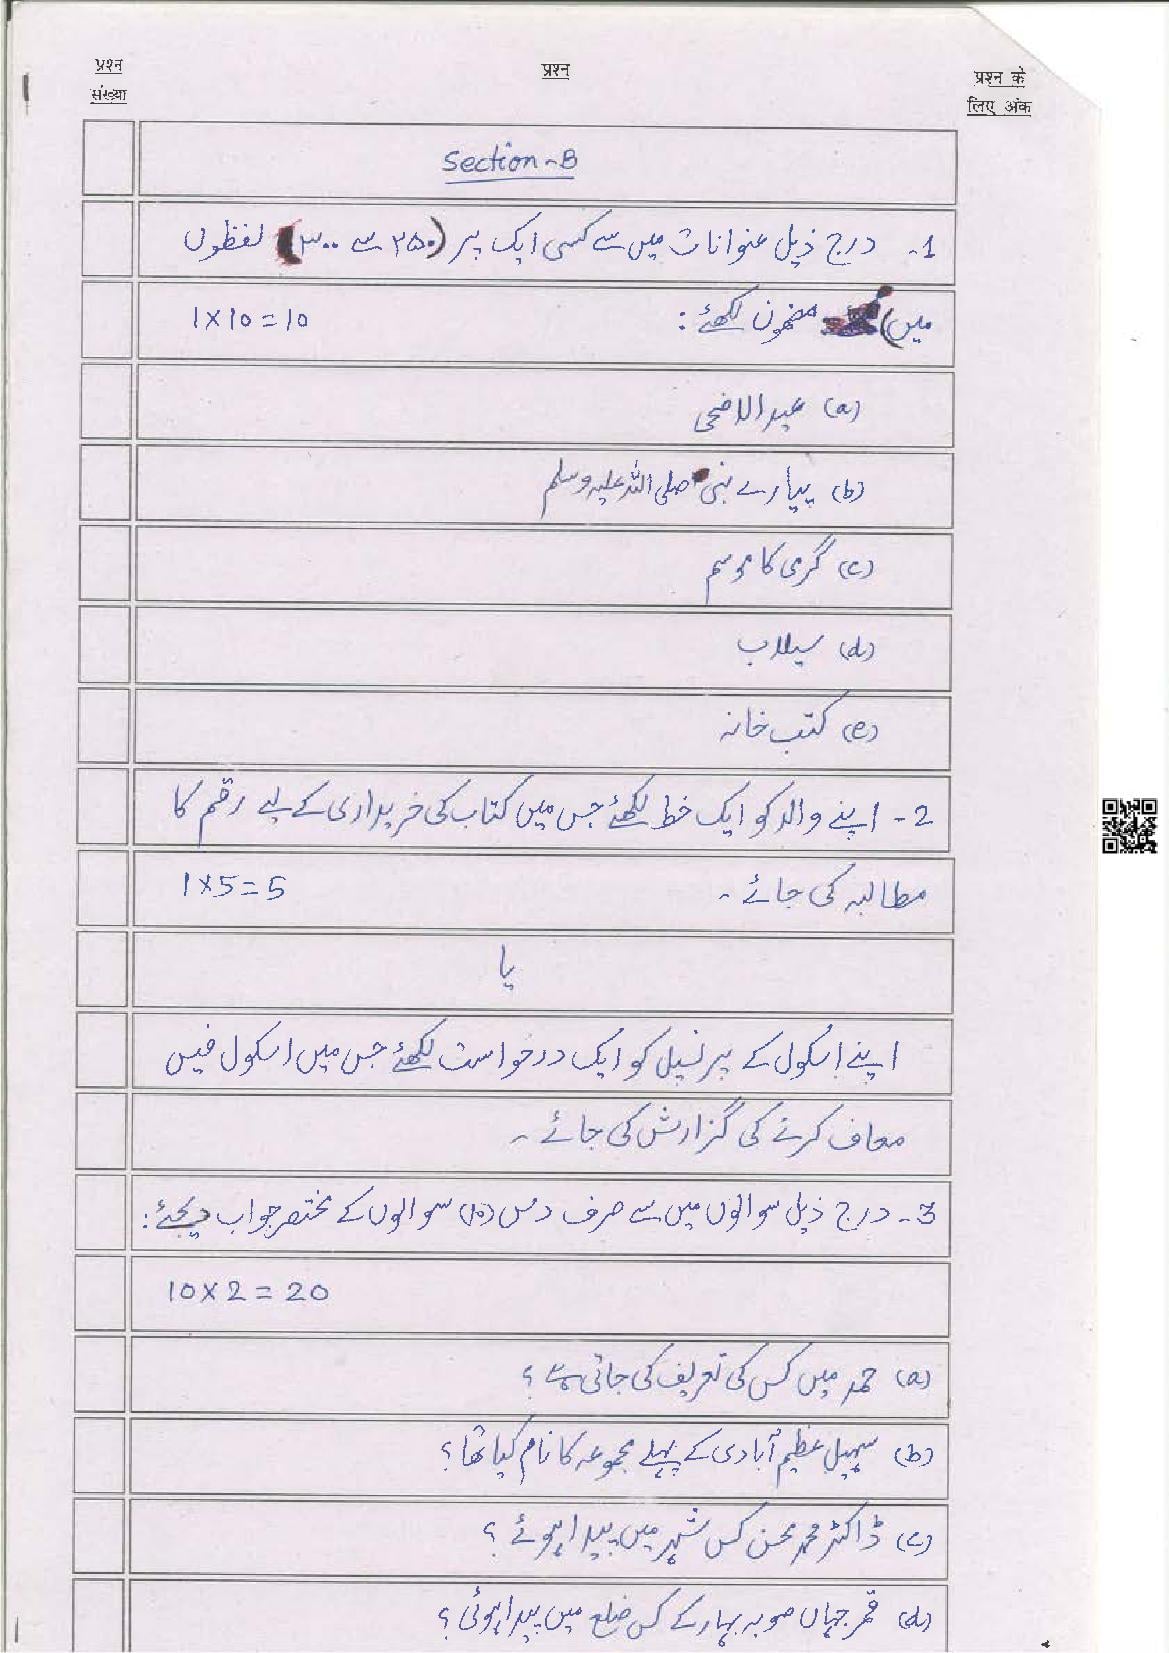 प्रश्न संख्या
प्रश्न
प्रश्न के लिए अंक
Section-B
1- درج ذیل عنوانات میں سے کسی ایک پر (۲۵۰ سے ۳۰۰) لفظوں
میں) مضمون لکھئے : 1×10=10
(a) عیدالاضحی
(b) پیارے نبی صلی اللہ علیہ وسلم
(c) گرمی کا موسم
(d) سیلاب
(e) کتب خانہ
2- اپنے والد کو ایک خط لکھئے جس میں کتاب کی خریداری کے لیے رقم کا
مطالبہ کی جائے ۔ 1×5=5
یا
اپنے اسکول کے پرنسپل کو ایک درخواست لکھئے جس میں اسکول فیس
معاف کرنے کی گزارش کی جائے ۔
3- درج ذیل سوالوں میں سے صرف دس (10) سوالوں کے مختصر جواب دیجئے :
10×2=20
(a) حمد میں کس کی تعریف کی جاتی ہے ؟
(b) سہیل عظیم آبادی کے پہلے مجموعہ کا نام کیا تھا ؟
(c) ڈاکٹر محمد محسن کس شہر میں پیدا ہوئے ؟
(d) قمر جہاں صوبہ بہار کے کس ضلع میں پیدا ہوئی ؟